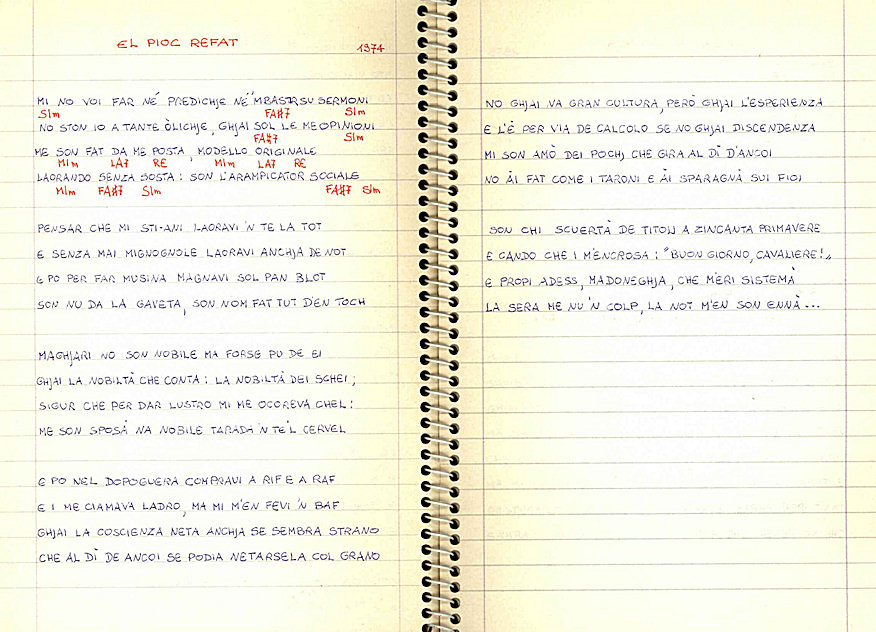 EL PIOC REFAT
1974
MI NO VOI FAR NÉ PREDICHJE NÉ 'MBASTIR SU SERMONI
SIm FA#7 SIm
NO STON IO A TANTE ÒLICHJE, GHJAI SOL LE ME OPINIONI
FA#7 SIm
ME SON FAT DA ME POSTA, MODELLO ORIGINALE
MIm LA7 RE MIm LA7 RE
LAORANDO SENZA SOSTA: SON L'ARAMPICATOR SOCIALE
MIm FA#7 SIm FA#7 SIm
PENSAR CHE MI STI-ANI LAORAVI 'N TE LA TOT
E SENZA MAI MIGNOGNOLE LAORAVI ANCHJA DE NOT
E PO PER FAR MUSINA MAGNAVI SOL PAN BLOT
SON NU DA LA GAVETA, SON NOM FAT TUT D'EN TOCH
MAGHJARI NO SON NOBILE MA FORSE PU DE EI
GHJAI LA NOBILTÀ CHE CONTA: LA NOBILTÀ DEI SCHEI;
SIGUR CHE PER DAR LUSTRO MI ME OCOREVA CHEL:
ME SON SPOSÀ NA NOBILE TARADA 'N TE'L CERVEL
E PO NEL DOPOGUERA COMPRAVI A RIF E A RAF
E I ME CIAMAVA LADRO, MA MI M'EN FEVI 'N BAF
GHJAI LA COSCIENZA NETA ANCHJA SE SEMBRA STRANO
CHE AL DÌ DE ANCOI SE PODIA NETARSELA COL GRANO
NO GHJAI VA GRAN CULTURA, PERÒ GHJAI L'ESPERIENZA
E L'È PER VIA DE CALCOLO SE NO GHJAI DISCENDENZA
MI SON AMÒ DEI POCHJ CHE GIRA AL DÌ D'ANCOI
NO ÀI FAT COME I TARONI E ÀI SPARAGNÀ SUI FIOI
SON CHI SCUERTÀ DE TITOLI A ZINCANTA PRIMAVERE
E CANDO CHE I M'ENCROSA: "BUON GIORNO, CAVALIERE!"
E PROPI ADESS, MADONEGHJA, CHE M'ERI SISTEMÀ
LA SERA ME NU 'N COLP, LA NOT M'EN SON ENNÀ...